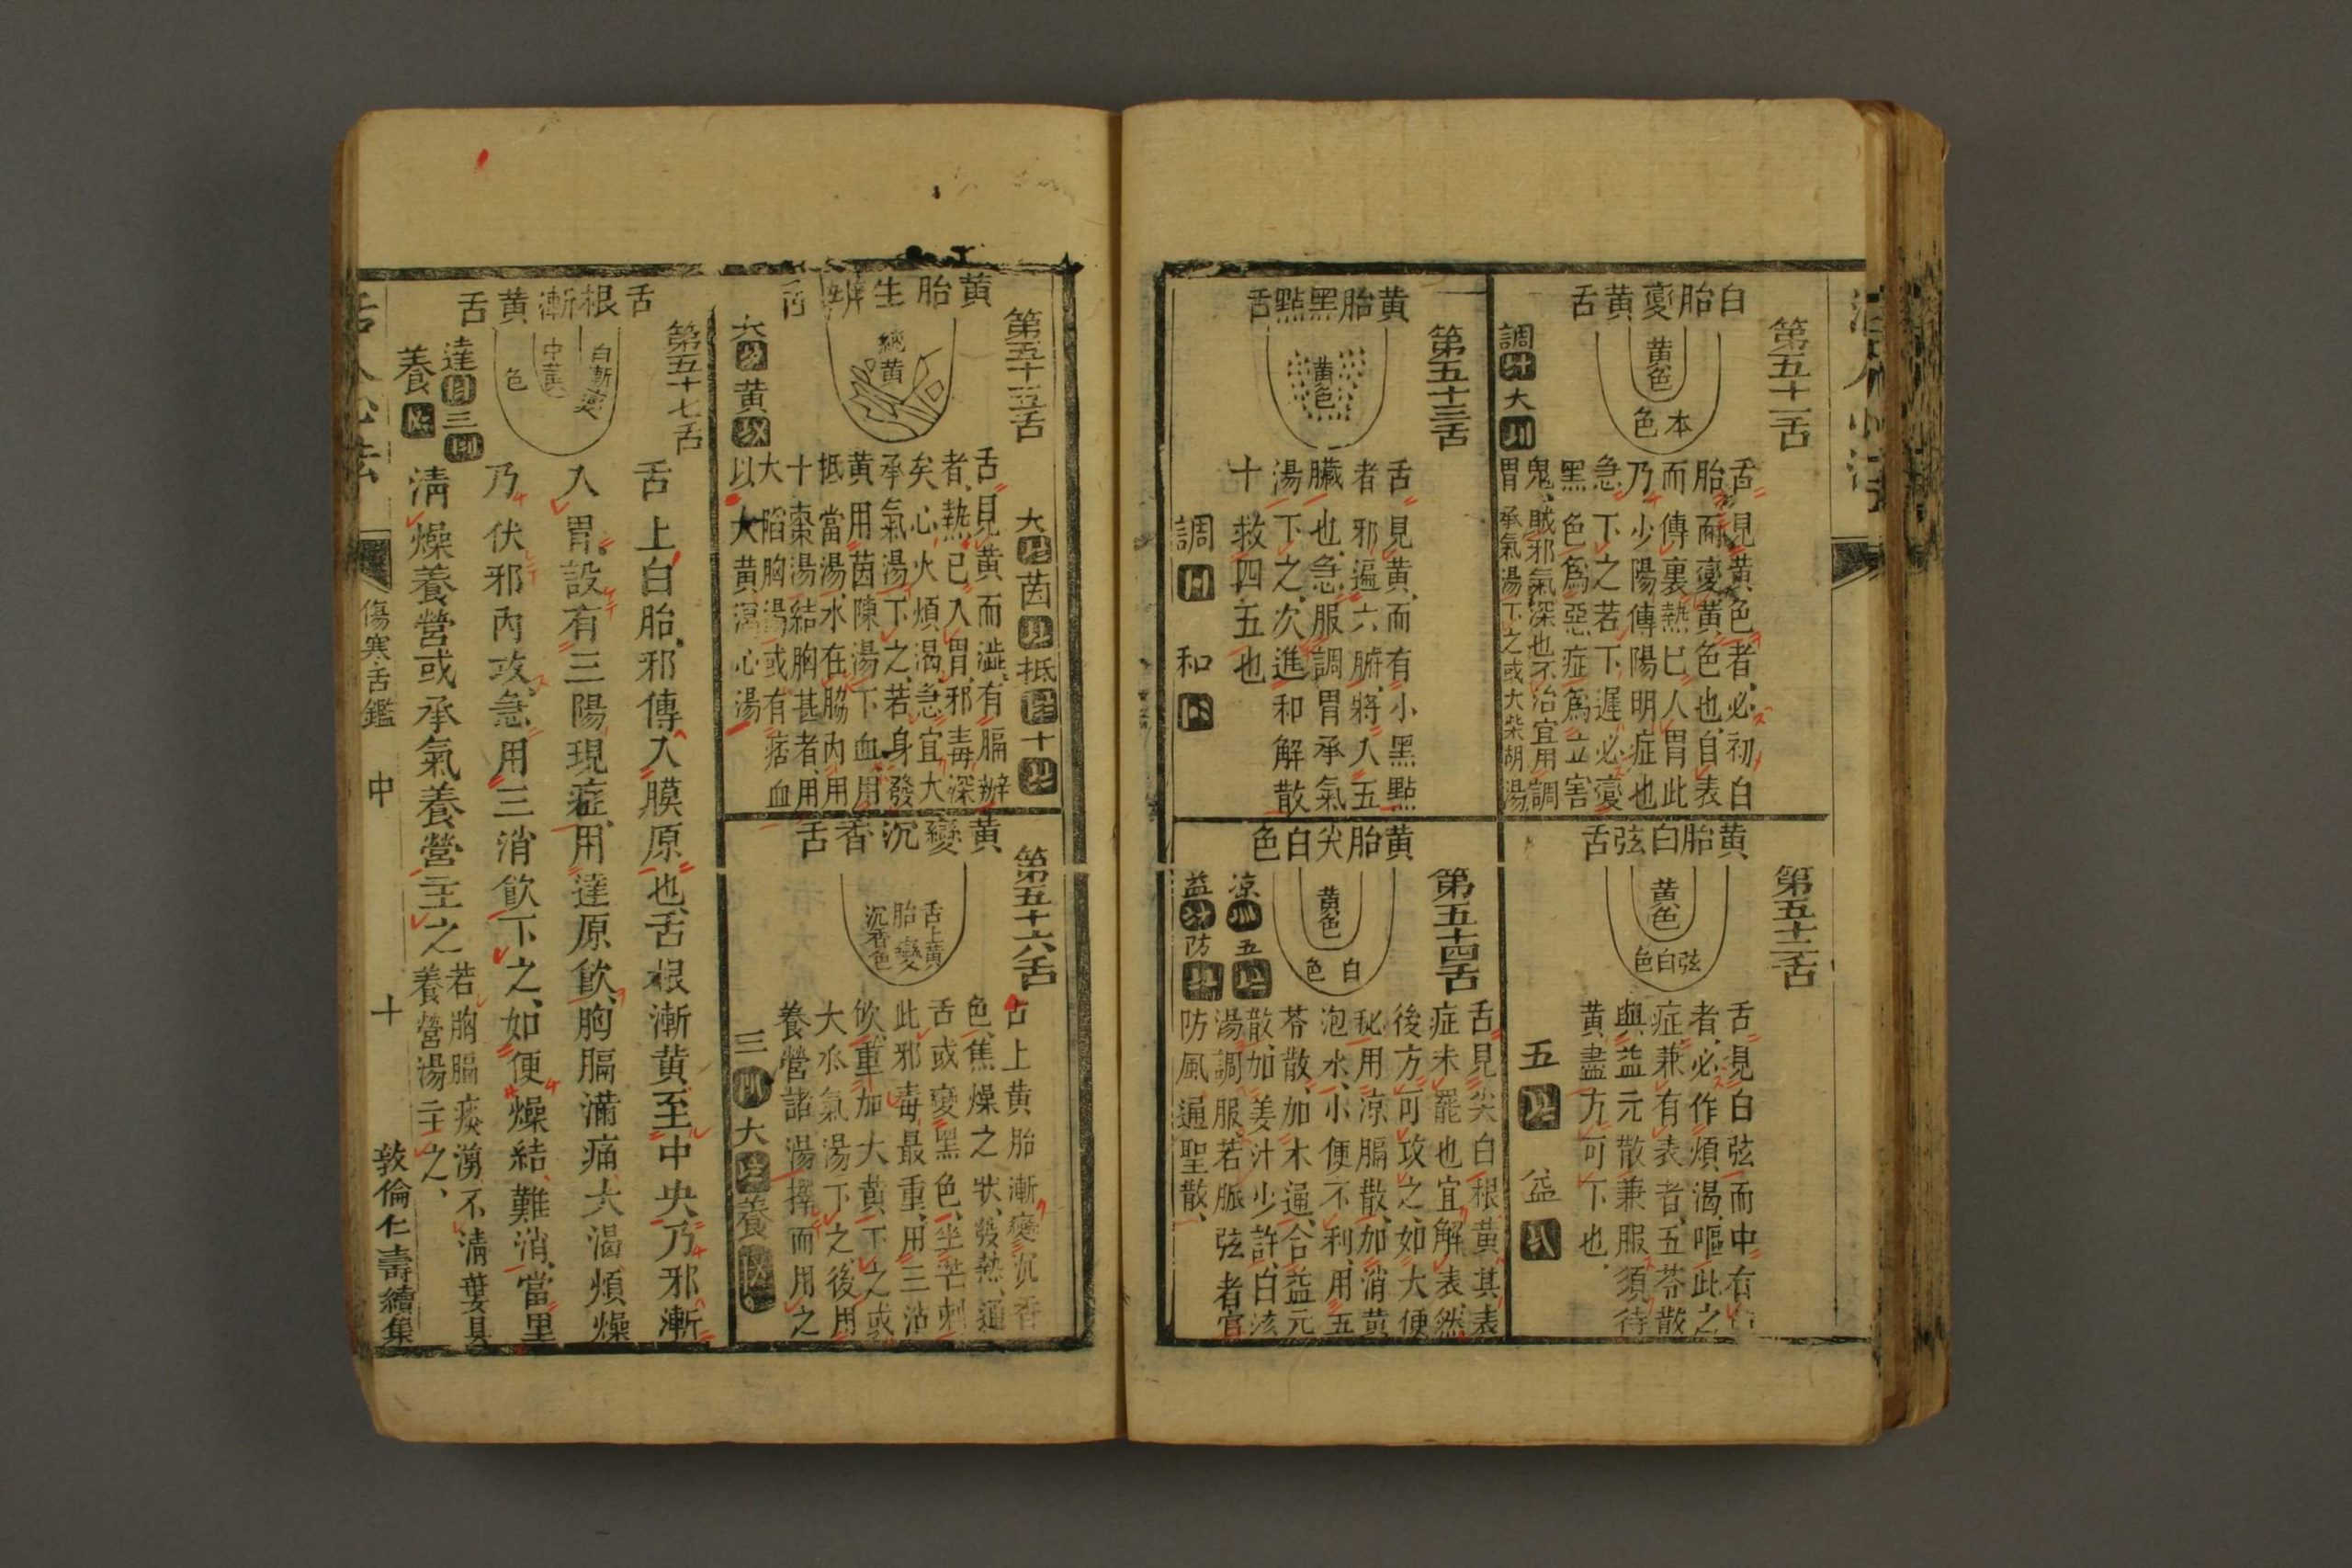 第五十一舌
白胎變黃舌
黃色
本色
舌見黃色者必初白
胎而變黃色也自表
而傳裏熱已人胃此
乃少陽傳陽明症也
急下之若下遲必變
黑色爲惡症爲立害
鬼賊邪氣深也不治宜用調
胃承氣湯下之或大柴胡湯
調
大
第五十二舌
黃胎白弦舌
黃色
弦白色
舌見白弦而中有
者必作煩渴嘔此之
症兼有表者五苓散
與益元散兼服須待
黃盡方可下也
五
益
第五十三舌
黃胎黑點舌
黃色
舌見黃而有小黑點
者邪遍六腑將人五
臟也急服調胃承氣
湯下之次進和解散
十救四五也
調
和
第五十四舌
黃胎尖白色
黃色
白色
舌見尖白根黃其表
症未罷也宜解表然
後方可攻之如大便
秘用涼膈散加消黃
泡水小便不利用五
苓散加木通合益元
散加姜汁少許白滾
湯調服若脈弦者宜
防風通聖散
涼
五
益
防
第五十五舌
黃胎生辨舌
純黃
大
茵
抵
十
舌見黃而澁有膈辦
者熱已入胃邪毒深
矣心火煩渴急宜大
承氣湯下之若身發
黃用茵陳湯下血用
抵當湯水在脇內用
十棗湯結胸甚者用
大陷胸湯或有痞血
以大黃瀉心湯
大
黃
第五十六舌
黃變沉香舌
舌上黃
胎變
沉香色
舌上黃胎漸變沉香
色焦燥之狀發熱通
舌或變黑色坐芒刺
此邪毒最重用三沾
飲重加大黃下之或
大承氣湯下之後用
養營諸湯擇而用之
三
大
養
第五十七舌
舌根漸黃舌
白漸變
中黃
色
舌上白胎邪傳入膜原也舌根漸黃至中央乃邪漸
入胃設有三陽現症用達原飲胸膈滿痛大渴煩燥
乃伏邪內攻急用三消飲下之如便燥結難消當里
清燥養營或承氣養營主之
若胸膈痰湧不清蔞貝
養營湯主之
達
三
養
傷寒舌鑑
中
十
敦倫仁壽續集